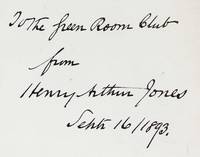 To the Green Room Club
from
Henry Arthur Jones
Sept: 16/1893.